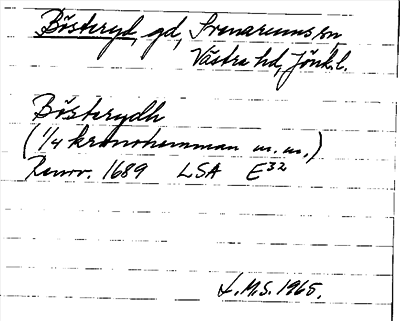 Bösteryd, gd, Svenarums sn
Västra hd, Jönk.l.
Bösterydh
(1/4 kronohemman m.m.)
Renov. 1689 LSA E32
L.M.S. 1965.